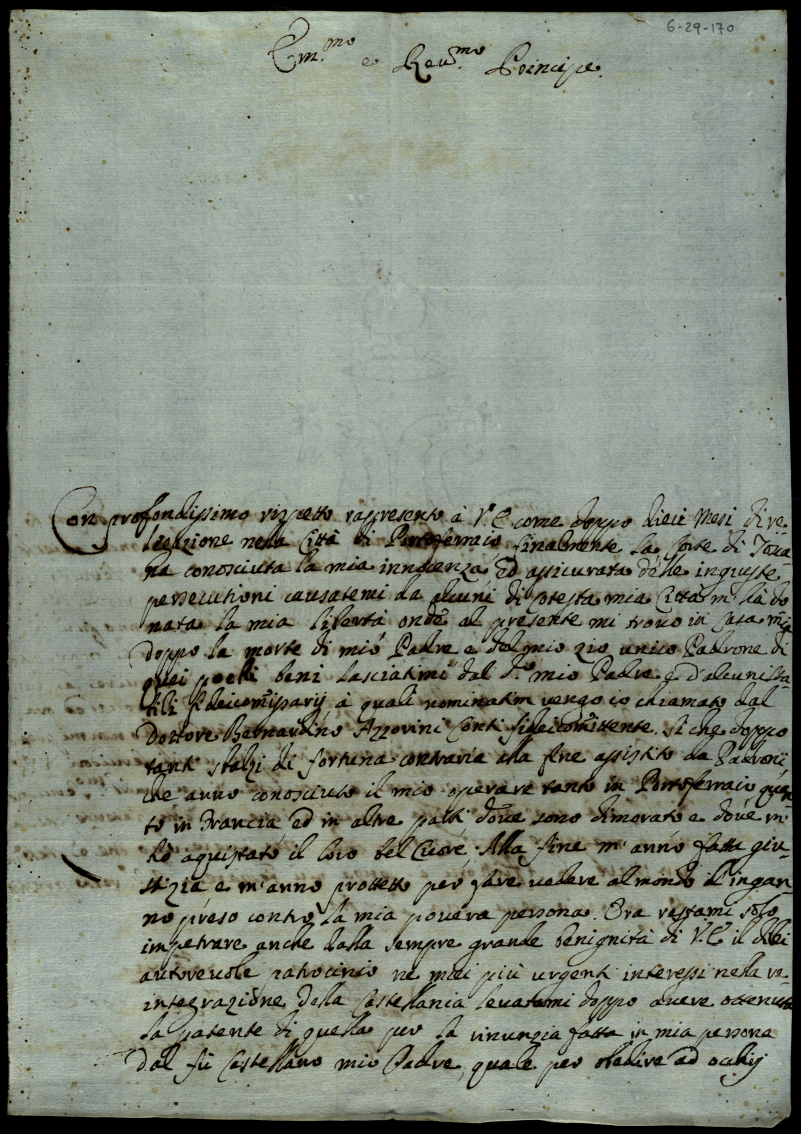 6-29-170
Em.mo e Reu.mo Principe
Con profondissimo rispetto rappresento à V.E come doppo dieci Mesi di re
legazione nella Città di Portoferraio finalmente la Corte di Tosca
na conosciuta la mia innocenza, ed assicurata delle ingiuste
persecutioni causatemi da alcuni di cotesta mia Città m'hà do
nata la mia libertà onde al presente mi trouo in Casa mia
doppo la morte di mio Padre e dal mio zio unico Padrone di
quei pochi beni lasciatimi dal d.o mio Padre, e d'alcuni sta
bili fideicomissarij à quali nominatim vengo io chiamato dal
Dottore Bernardino Azzovini Conti fideicomittente. Si che doppo
tanti sbalzi di fortuna contraria alla fine assistito da Padroni
che anno conosciuto il mio operare tanto in Portoferraio quan
to in Francia ed in altre parti doue sono dimorato e doue m'
hò aquistato il loro bel Cuore, Alla fine m'anno fatta giu-
stizia e m'anno prottetto per fare vedere al mondo l'ingan-
no preso contro la mia pouera persona. Ora restami solo
impetrare anche dalla sempre grande benignità di V.E il di lei
autoreuole patrocinio ne miei più urgenti interessi nella re-
integrazione della Castellania leuatami doppo auere ottenuta
la patente di quella per la rinunzia fatta in mia persona
dal fù Castellano mio Padre, quale per obedire ad occhij